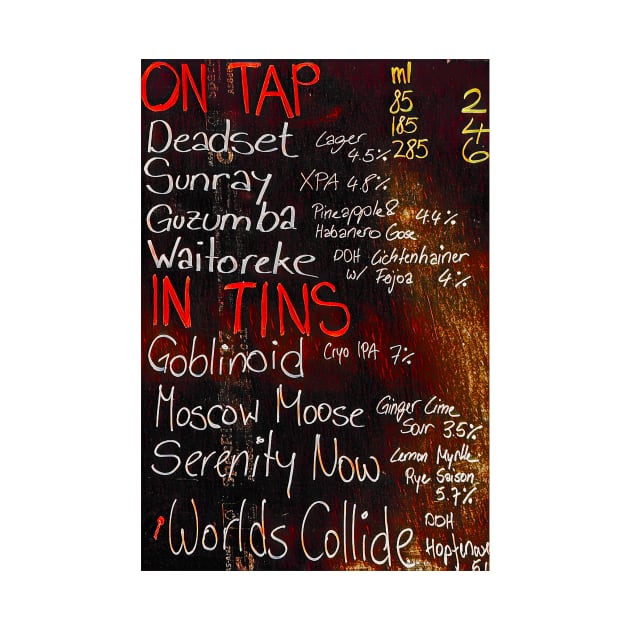 ON TAP ml
85 2
185 4
285 6
Deadset Lager
4.5%
Sunray XPA 4.8%
Guzumba Pineapple &
Habanero Gose 4.4%
Waitoreke DDH Lichtenhainer
w/ Fejoa 4%
IN TINS
Goblinoid Cryo IPA 7%
Moscow Moose Ginger Lime
Sour 3.5%
Serenity Now Lemon Myrtle
Rye Saison
5.7%
Worlds Collide DDH